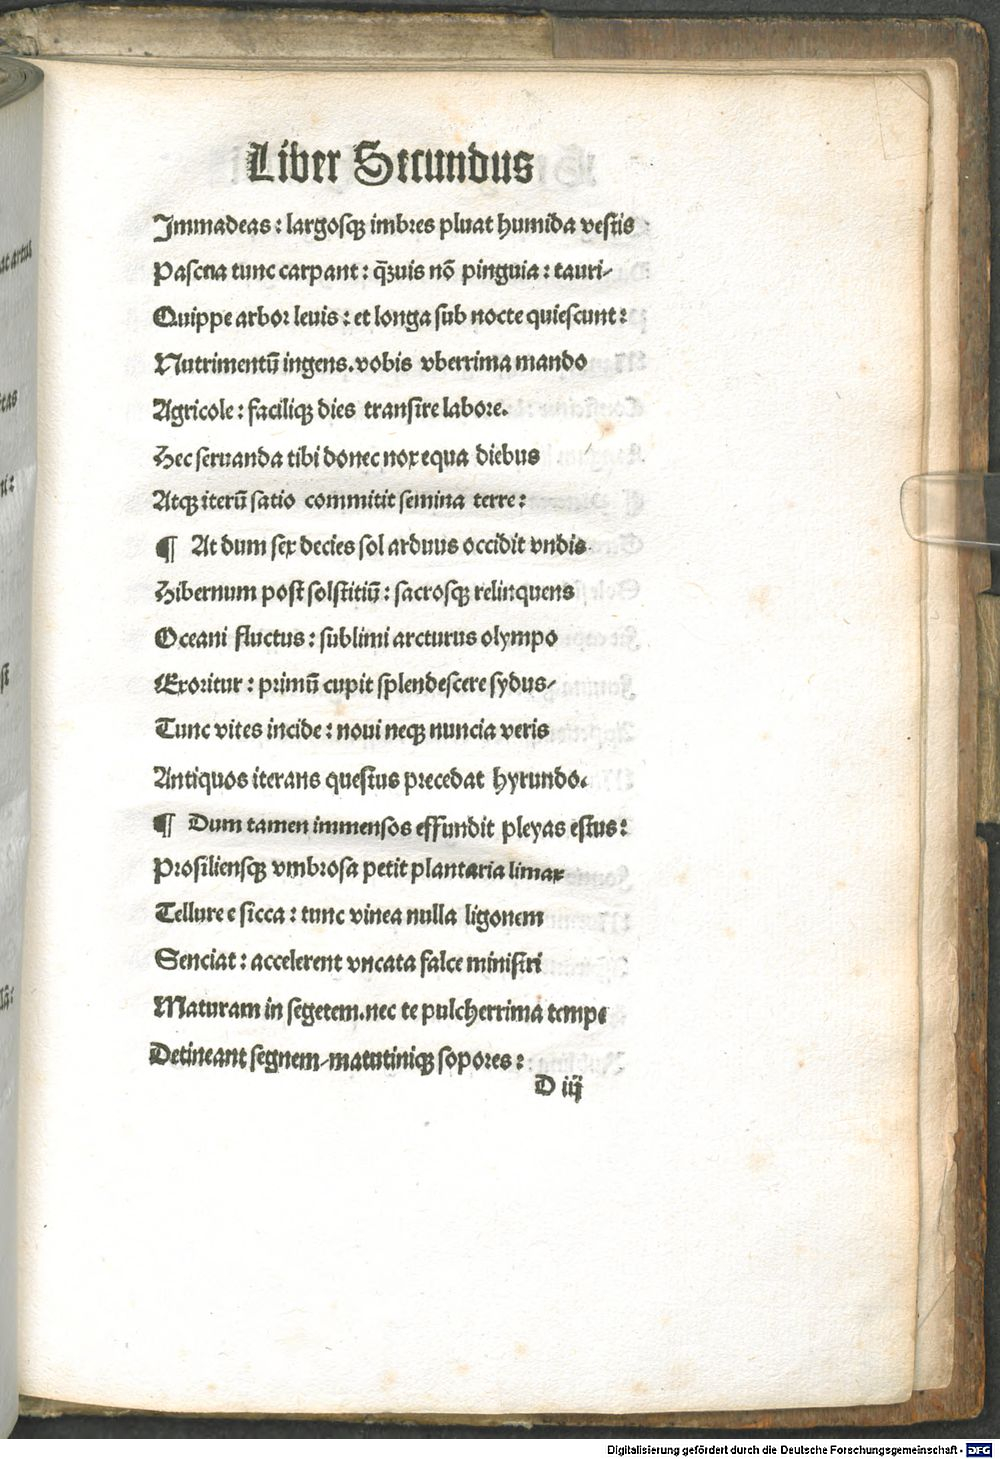 Liber Secundus
Immadeas: largosqꝫ imbres pluat humida vestis
Pascua tunc carpant: q̃uis nō pinguia: tauri/
Quippe arbor leuis: et longa sub nocte quiescunt:
Nutrimentū ingens. vobis vberrima mando
Agricole: faciliqꝫ dies transire labore.
Hec seruanda tibi donec nox equa diebus
Atqꝫ iterū satio committit semina terre:
¶ At dum sex decies sol arduus occidit vndis
Hibernum post solstitiū: sacrosqꝫ relinquens
Oceani fluctus: sublimi arcturus olympo
Exoritur: primū cupit splendescere sydus/
Tunc vites incide: noui neqꝫ nuncia veris
Antiquos iterans questus precedat hyrundo.
¶ Dum tamen immensos effundit pleyas estus:
Prosiliensqꝫ vmbrosa petit plantaria limax
Tellure e sicca: tunc vinea nulla ligonem
Senciat: accelerent vncata falce ministri
Maturam in segetem. nec te pulcherrima tempe
Detineant segnem/ matutiniqꝫ sopores:
D iij
Digitalisierung gefördert durch die Deutsche Forschungsgemeinschaft - DFG